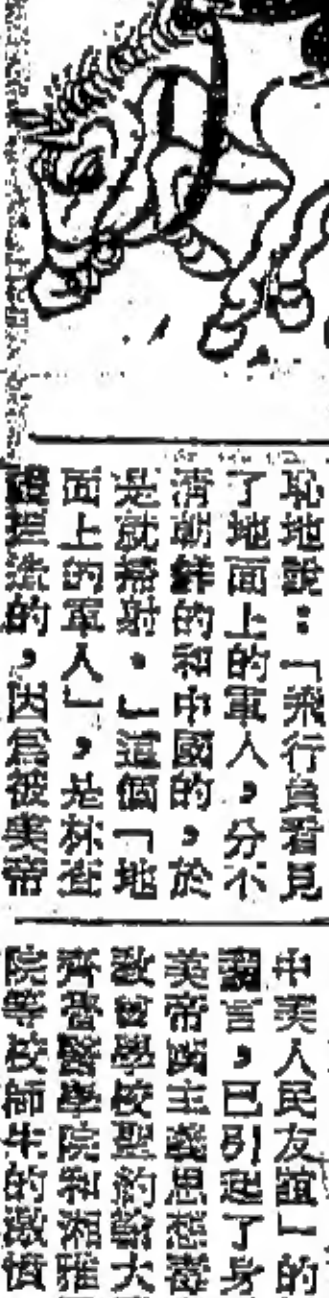 恥地說：「飛行員看見
了地面上的軍人，分不
清朝鮮的和中國的，於
是就掃射。」這個「地
面上的軍人」，是林查
捏造的，因爲被美帝
中美人民友誼」的
言，已引起了身
美帝國主義思想毒
敎會學校聖約翰大
齊魯醫學院和湘雅
院等校師生的激憤